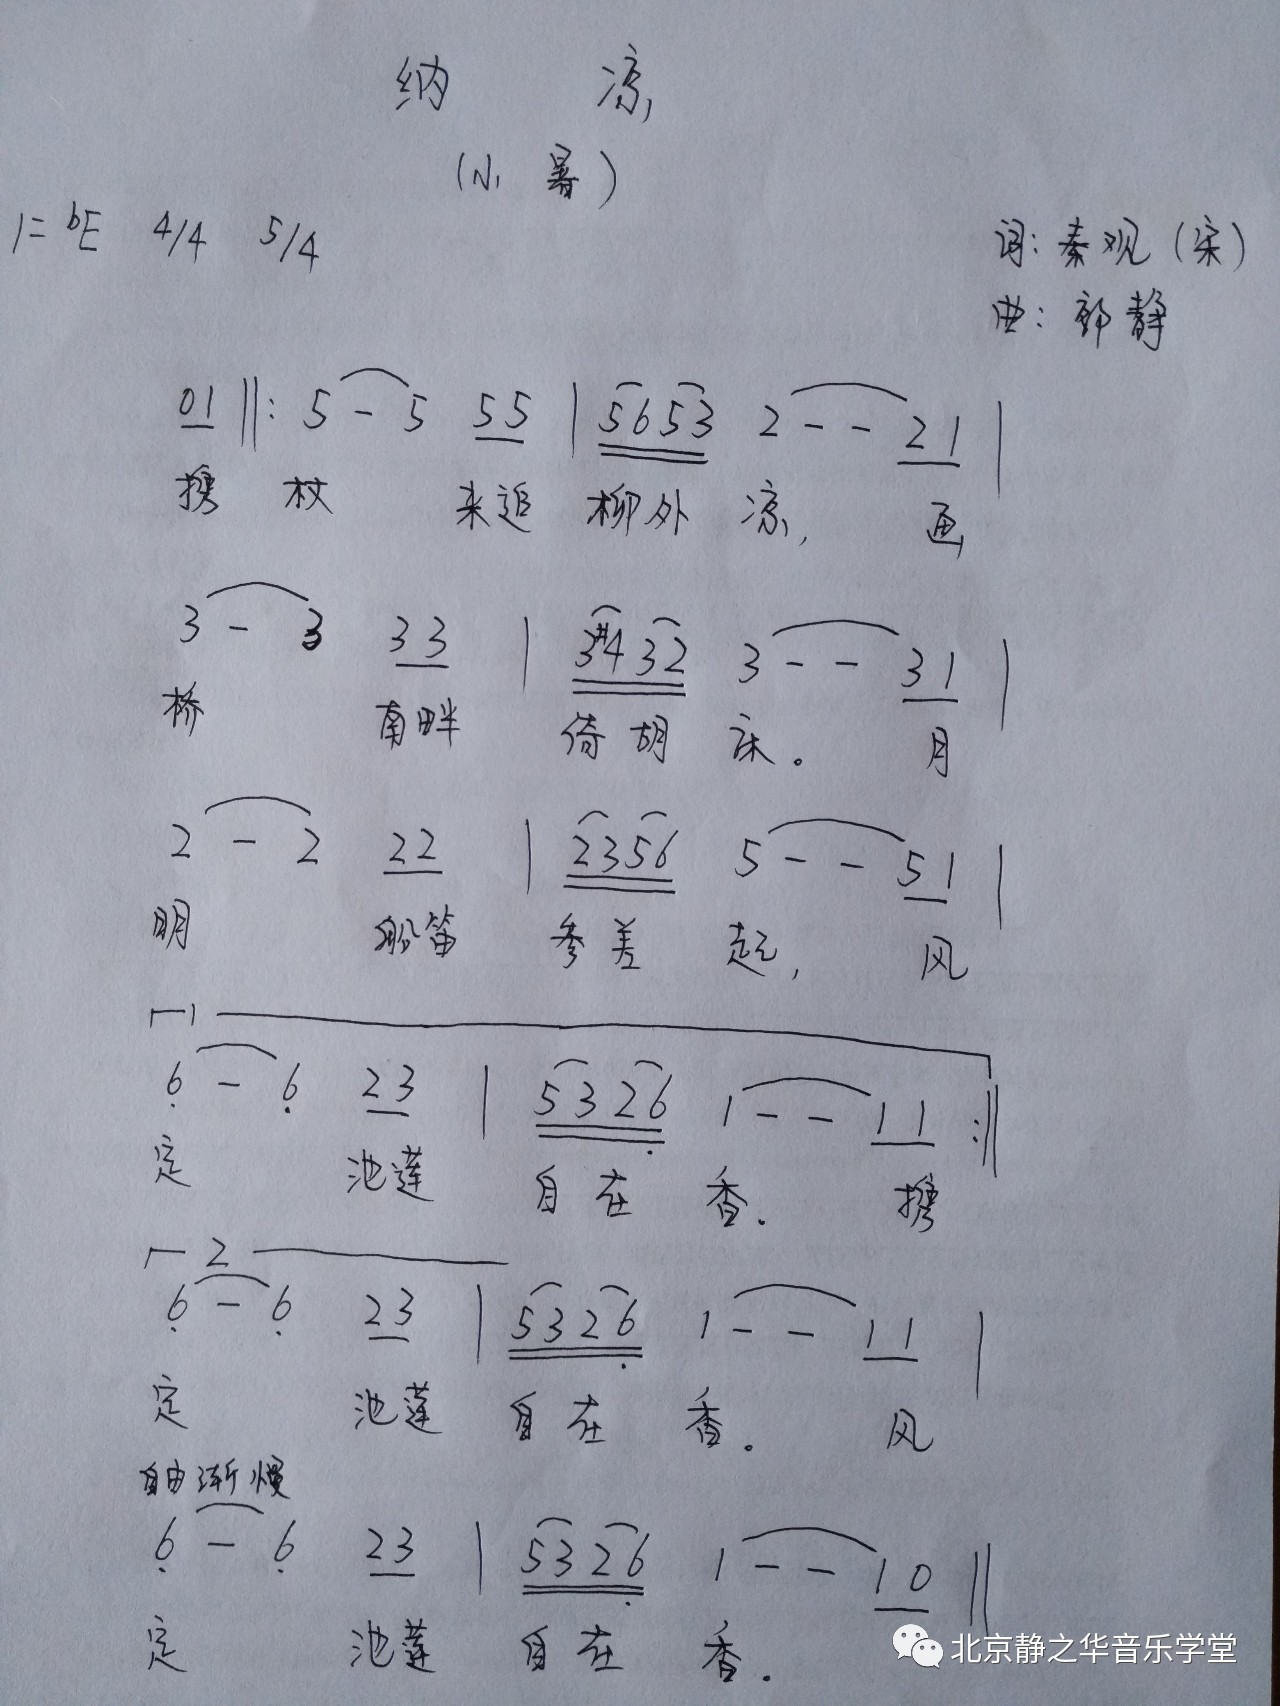 纳 凉
(小暑)
1=bE 4/4 5/4
词:秦观(宋)
曲:郭静
01 ‖: 5 - 5 55 | 5653 2 - - 21 |
携 杖 来追 柳外 凉, 画
3 - 3 33 | 3#432 3 - - 31 |
桥 南畔 倚胡 床。 月
2 - 2 22 | 2356 5 - - 51 |
明 船笛 参差 起, 风
1
6 - 6 23 | 5326 1 - - 11 :‖
定 池莲 自在 香. 携
2
6 - 6 23 | 5326 1 - - 11 |
定 池莲 自在 香. 风
自由渐慢
6 - 6 23 | 5326 1 - - 10 ‖
定 池莲 自在 香.
北京静之华音乐学堂